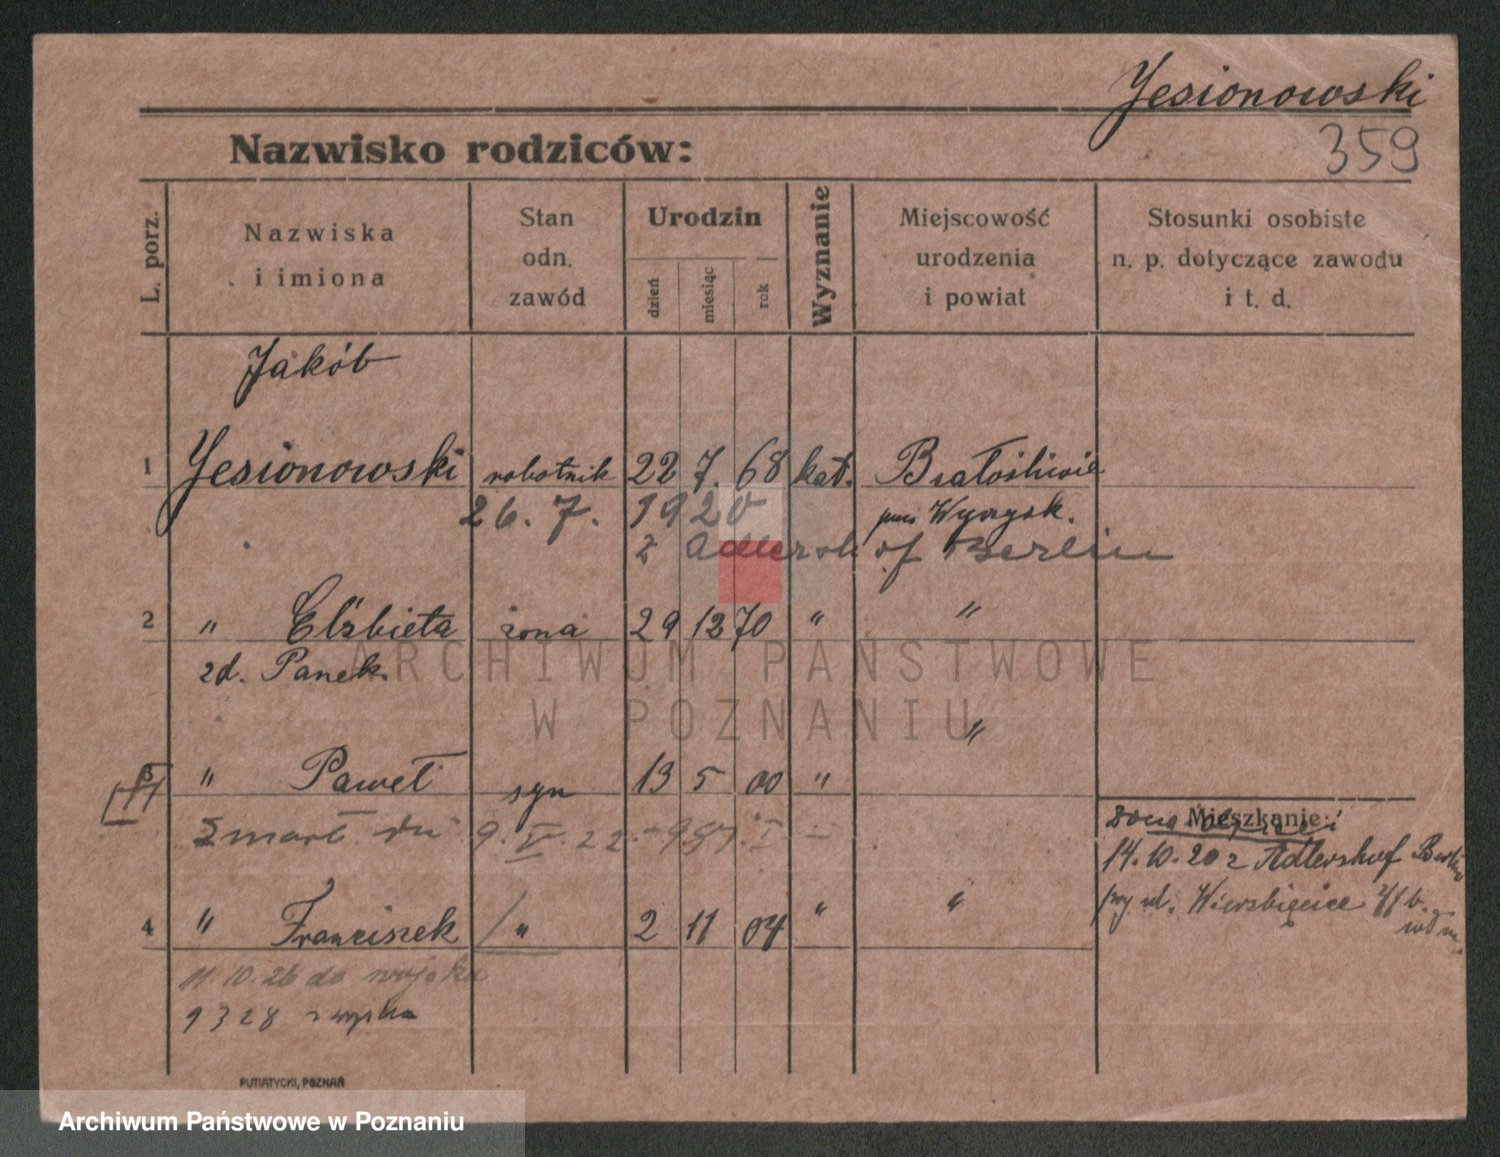 Jesionowski
359
Nazwisko rodziców:
L. porz.
Nazwiska
i imiona
Stan
odn.
zawód
Urodzin
dzień
miesiąc
rok
Wyznanie
Miejscowość
urodzenia
i powiat
Stosunki osobiste
n. p. dotyczące zawodu
i t. d.
Jakób
1 Jesionowski robotnik 22 7. 68 kat. Białośliwie
26. 7. 1920 Wyrzysk.
z Adlersh of Berlin
2 " Elżbieta żona 29 12 70 " "
zd. Panek.
"
3 " Paweł syn 13 5 00 "
Zmarł dn 9. V. 22.
Mieszkanie:
14. 10. 20 z Adlershof Berlin
4 " Franciszek " 2 11 04 " "
ul. Wierzbięcice
11. 10. 26 do wojska
9 3 28 z wojska
PUTIATYCKI, POZNAŃ
ARCHIWUM PAŃSTWOWE
W POZNANIU
Archiwum Państwowe w Poznaniu